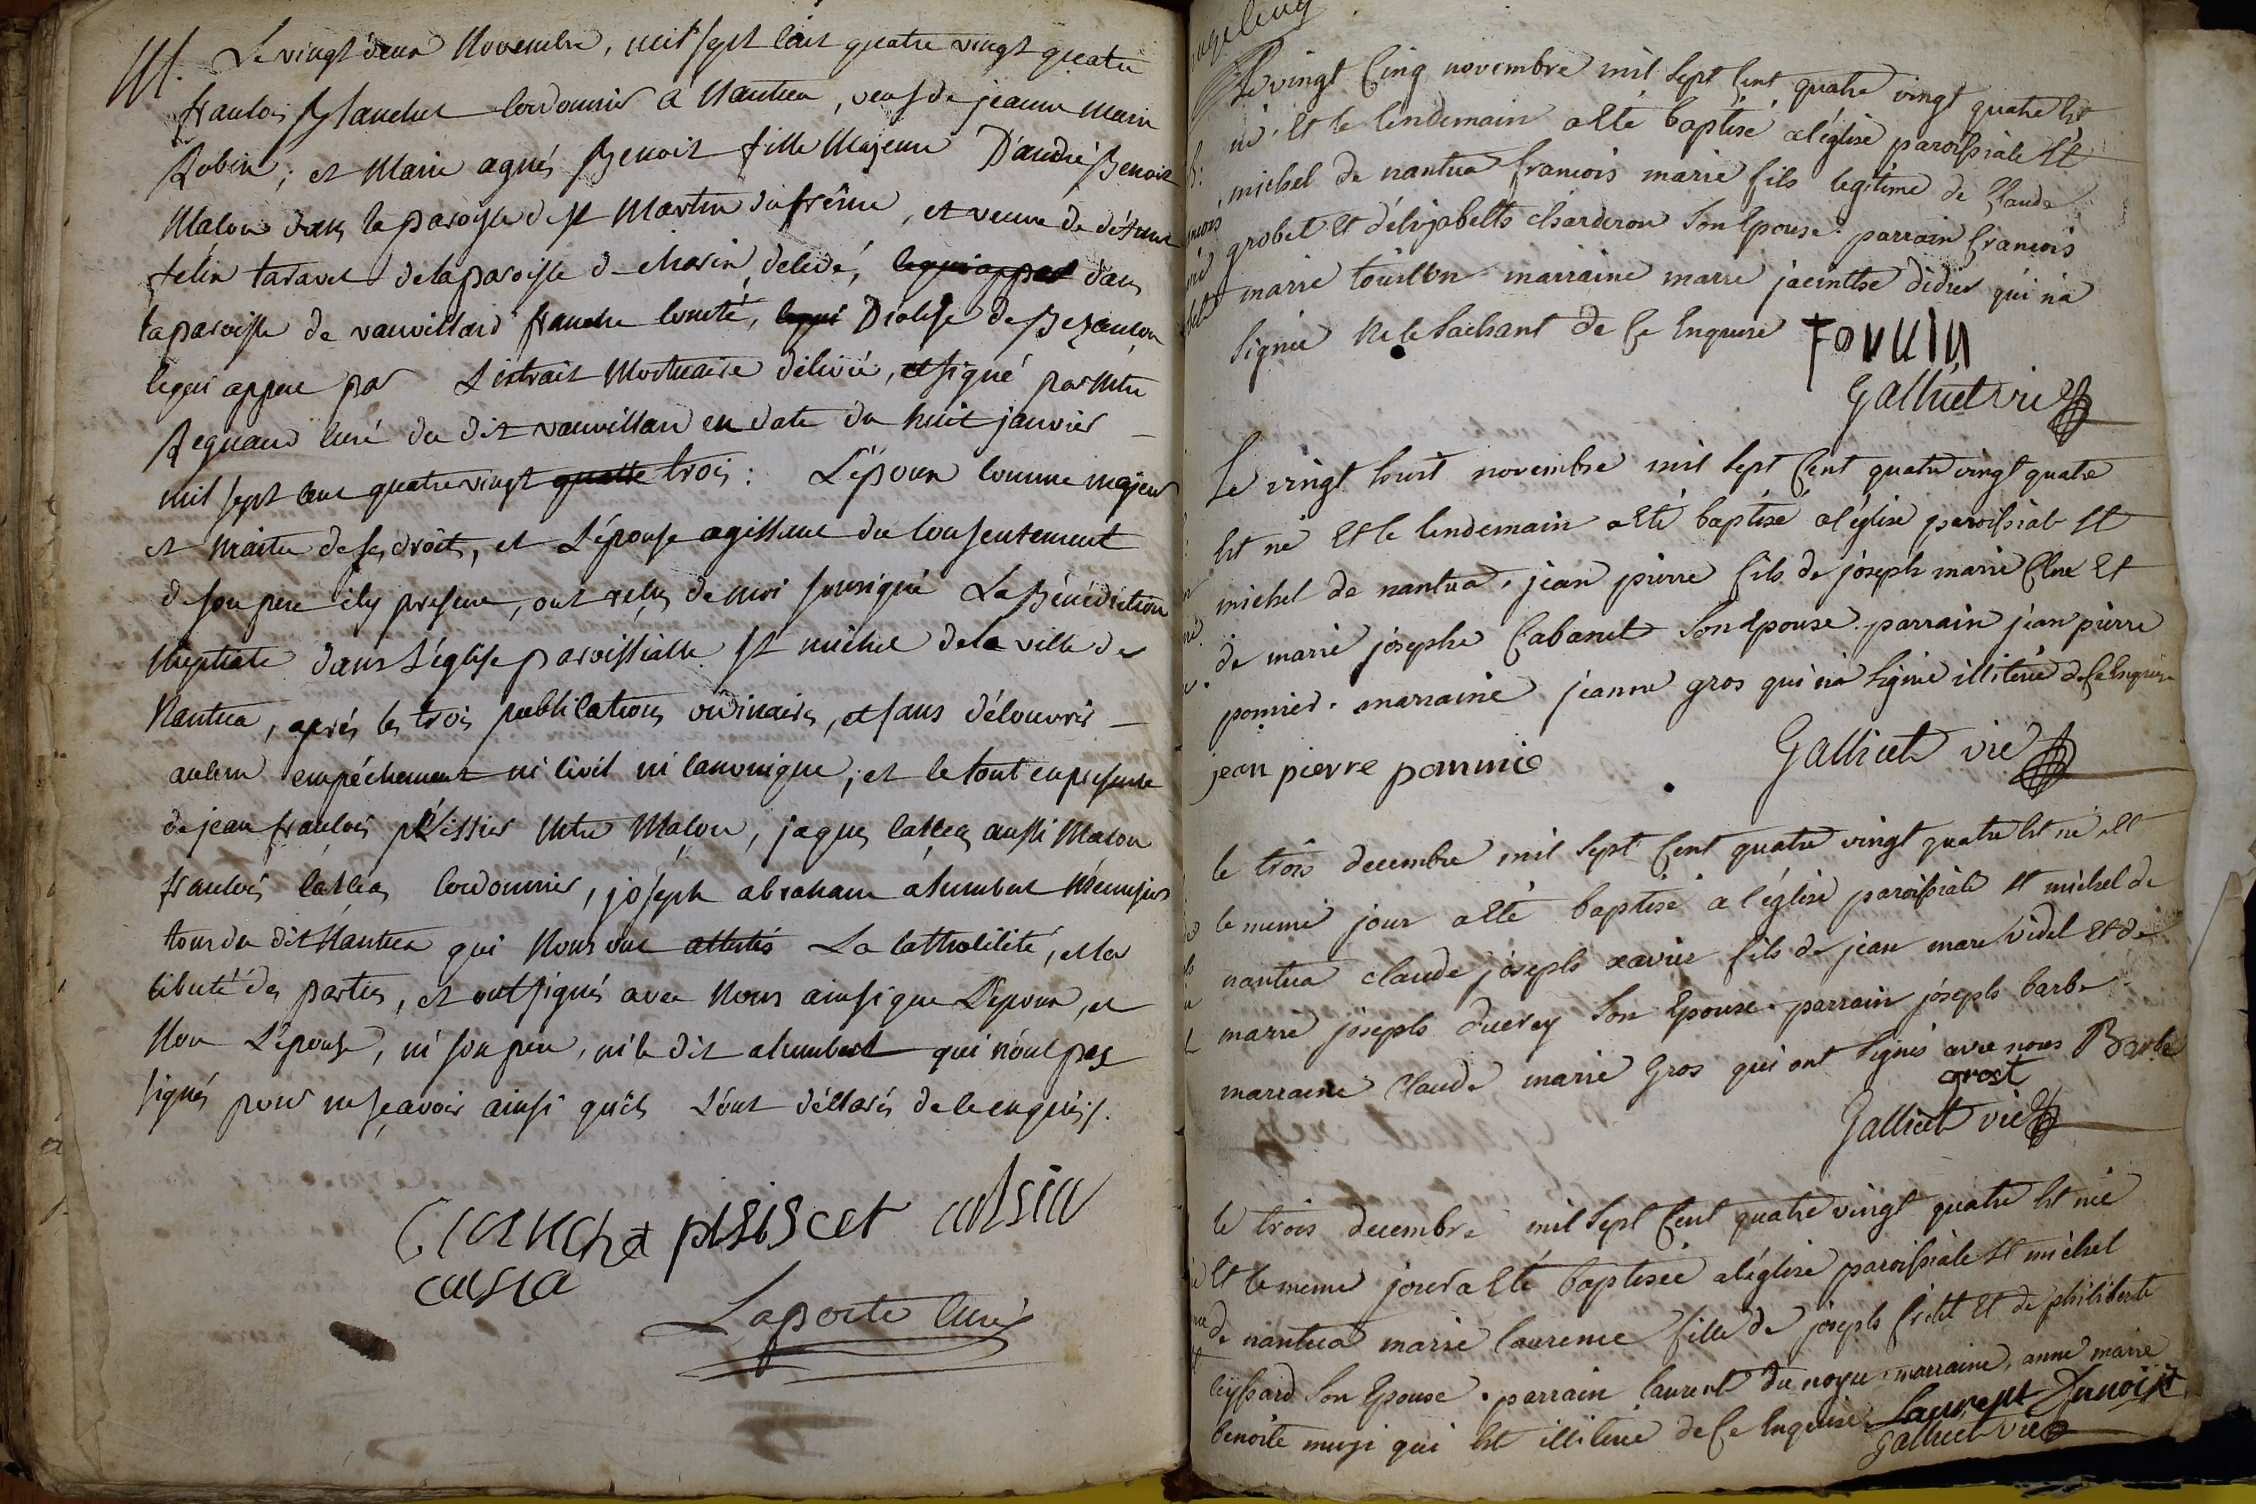 M. Le vingt deux Novembre, mil sept cent quatre vingt quatre
francois Blanchet cordonnier a Nantua, veuf de jeanne marie
Robin; et Marie agnés Benoit fille Majeure D'andré Benoit
Maçon dans la paroisse de st Martin du frêne, et veuve de défunt
felin taravet de la paroisse de charin deledé, lequi appert dans
la paroisse de vauvillard franche comté, lequi Diocése de Bezançon
lequi appert par L'extrait Mortuaire délivré, et signé par Mtre
Regnaud curé du dit vauvillard en date du huit janvier
mil sept cent quatre vingt quatre trois: L'époux comme majeur
et maître de ses droits, et L'épouse agissant du consentement
de son pere icy present, ont reçus de moi soussigné La Bénédiction
Nuptiale dans L'église paroissialle St michel de la ville de
Nantua, aprés les trois publications ordinaires, et sans découvrir
aucun empéchement ni civil ni canonique; et le tout en presence
de jean francois pélissier Mtre Maçon, jaques cassea aussi Macon
francois cassea cordonnier, joseph abraham alumbert Menuisier
tous du dit Nantua qui Nous ont attestés La catholicité, et la
liberté des parties, et ont signés avec Nous ainsi que L'époux, et
Non L'épouse, ni son pere, ni le dit alumbert qui n'ont pas
signés pour ne sçavoir ainsi qu'ils L'ont déclarés de ce enquis.
blanchet pisiscer cassia
cassia
Laporte curé
Le vingt cinq novembre mil sept cent quatre vingt quatre est
né et le lendemain a eté baptisé a l'église paroissiale St
michel de nantua francois marie fils legitime de claude
grobet et d'elizabeth charderon son epouse. parrain francois
marie tourllon marraine marie jacinthe didier qui na
signée ne le sachant de ce enquise
Galliet vic
Le vingt huit novembre mil sept cent quatre vingt quatre
est né et le lendemain a eté baptisé a l'église paroissiale st
michel de nantua, jean pierre fils de joseph marie Clere et
de marie josephe Cabanet son epouse. parrain jean pierre
pomier. marraine jeanne gros qui n'a signé illiterée de ce enquise
jean pierre pommie Galliet vic
le trois decembre mil sept cent quatre vingt quatre est né et
le meme jour a eté baptisé a l'église paroissiale st michel de
nantua claude joseph xavier fils de jean marie Videl et de
marie joseph ducrey son epouse. parrain joseph barbe
marraine claude marie gros qui ont signés avec nous Barbe
grost
Galliet vic
le trois decembre mil sept cent quatre vingt quatre est née
et le meme jour a eté baptisée a l'église paroissiale st michel
de nantua marie laurence fille de joseph friolet et de philiberte
leyssard son epouse. parrain laurent du noyer marraine, anne marie
benoite muzi qui est illiterée de ce enquise Laurent Dunoier
Galliet vic